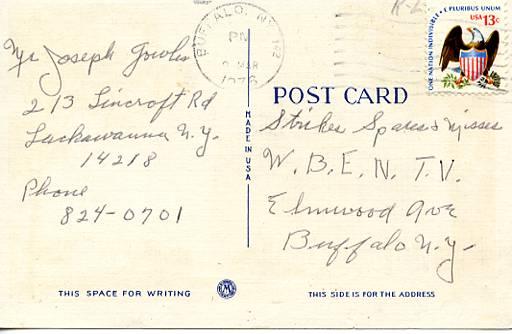 BUFFALO, NY 142
PM
MAR
1976
ONE NATION INDIVISIBLE • E PLURIBUS UNUM
USA 13c
Mr Joseph
213 Lincroft Rd
Lackawanna N.Y.
14218
Phone
824-0701
MADE IN USA
POST CARD
Strikes Spares & Misses
W.B.E.N. T.V.
Elmwood Ave
Buffalo N.Y.
THIS SPACE FOR WRITING
THIS SIDE IS FOR THE ADDRESS